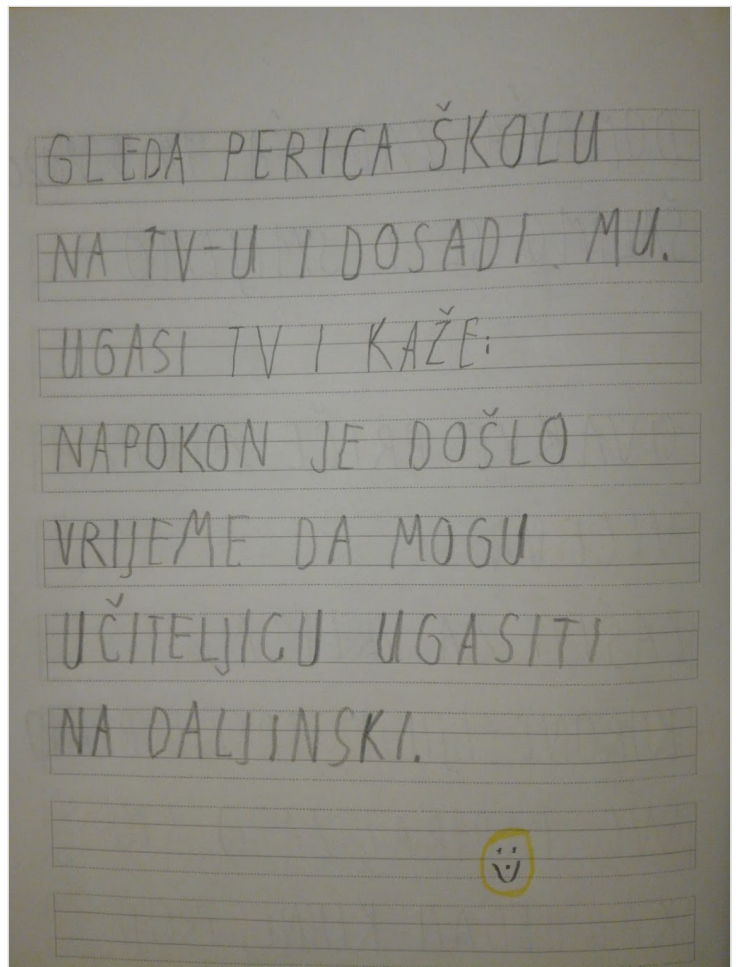 GLEDA PERICA ŠKOLU
NA TV-U I DOSADI MU.
UGASI TV I KAŽE:
NAPOKON JE DOŠLO
VRIJEME DA MOGU
UČITELJICU UGASITI
NA DALJINSKI.